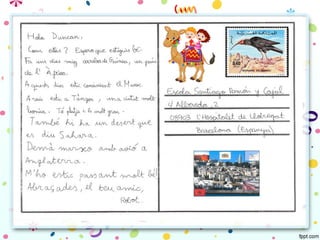 Hola Duncan:
Com estàs? Espero que estiguis bé.
Fa uns dies vaig arribar de
de l' Àfrica.
Aquests dies estic coneixent el Marroc.
Ara estic a Tànger, una ciutat molt
bonica. Té platja i és molt gran.
També hi ha un desert que
es diu Sahara.
Demà marxo amb avió a
Anglaterra.
M'ho estic passant molt bé!
Abraçades, el teu amic,
Robot.
Escola Santiago Ramón y Cajal
C/ Albareda, 2
08903 L'Hospitalet de Llobregat
Barcelona (Espanya)
fppt.com